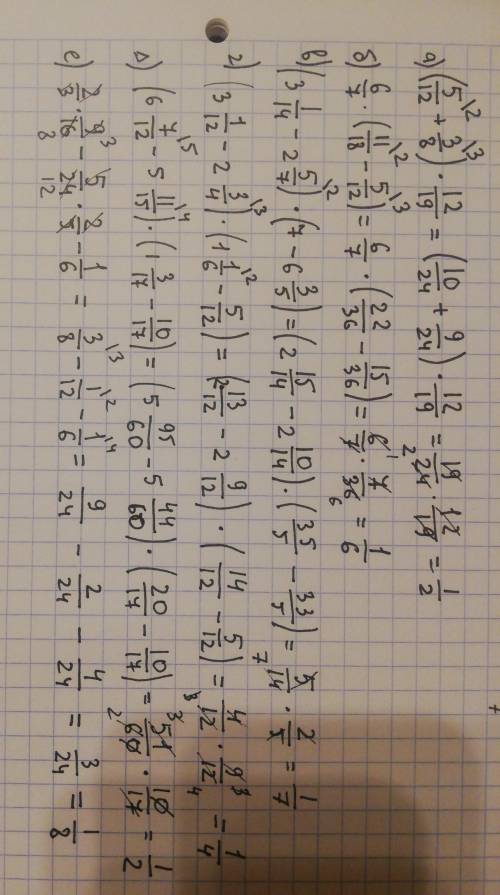 а) (5/12 \2 + 3/8 \3) · 12/19 = (10/24 + 9/24) · 12/19 = 19/24 2 · 12/19 = 1/2
б) 6/7 · (11/18 \2 - 5/12 \3) = 6/7 · (22/36 - 15/36) = 6/7 1 · 7/36 6 = 1/6
в) (3 1/14 - 2 5/7 \2) · (7 - 6 3/5) = (2 15/14 - 2 10/14) · (35/5 - 33/5) = 5/14 7 · 2/5 = 1/7
г) (3 1/12 - 2 3/4 \3) · (1 1/6 \2 - 5/12) = (2 13/12 - 2 9/12) · (14/12 - 5/12) = 4/12 3 · 9/12 3 4 = 1/4
д) (6 7/12 \5 - 5 11/15 \4) · (1 3/17 - 10/17) = (5 95/60 - 5 44/60) · (20/17 - 10/17) = 51/60 3 2 · 10/17 = 1/2
е) 2/3 · 9/16 3 8 - 5/24 12 · 2/5 - 1/6 = 3/8 \3 - 1/12 \2 - 1/6 \4 = 9/24 - 2/24 - 4/24 = 3/24 = 1/8